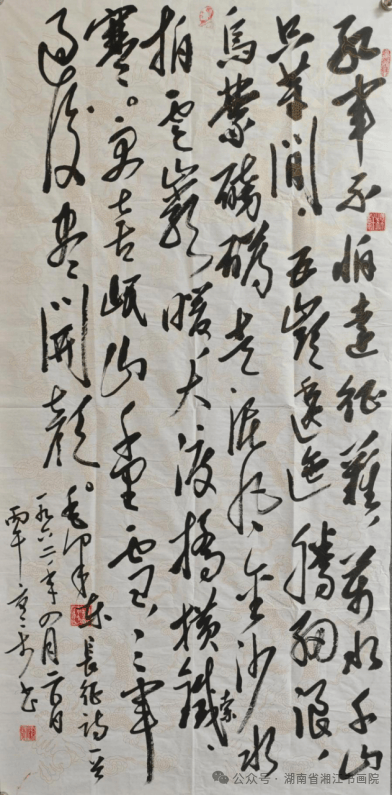 红军不怕远征难万水千山
只等闲五岭逶迤腾细浪
乌蒙磅礴走泥丸金沙水
拍云岩暖大渡桥横铁索
寒更喜岷山千里雪三军
过后尽开颜毛泽东长征诗一首
一九六二年四月二十日
丙午
公众号·湖南省湘江书画院